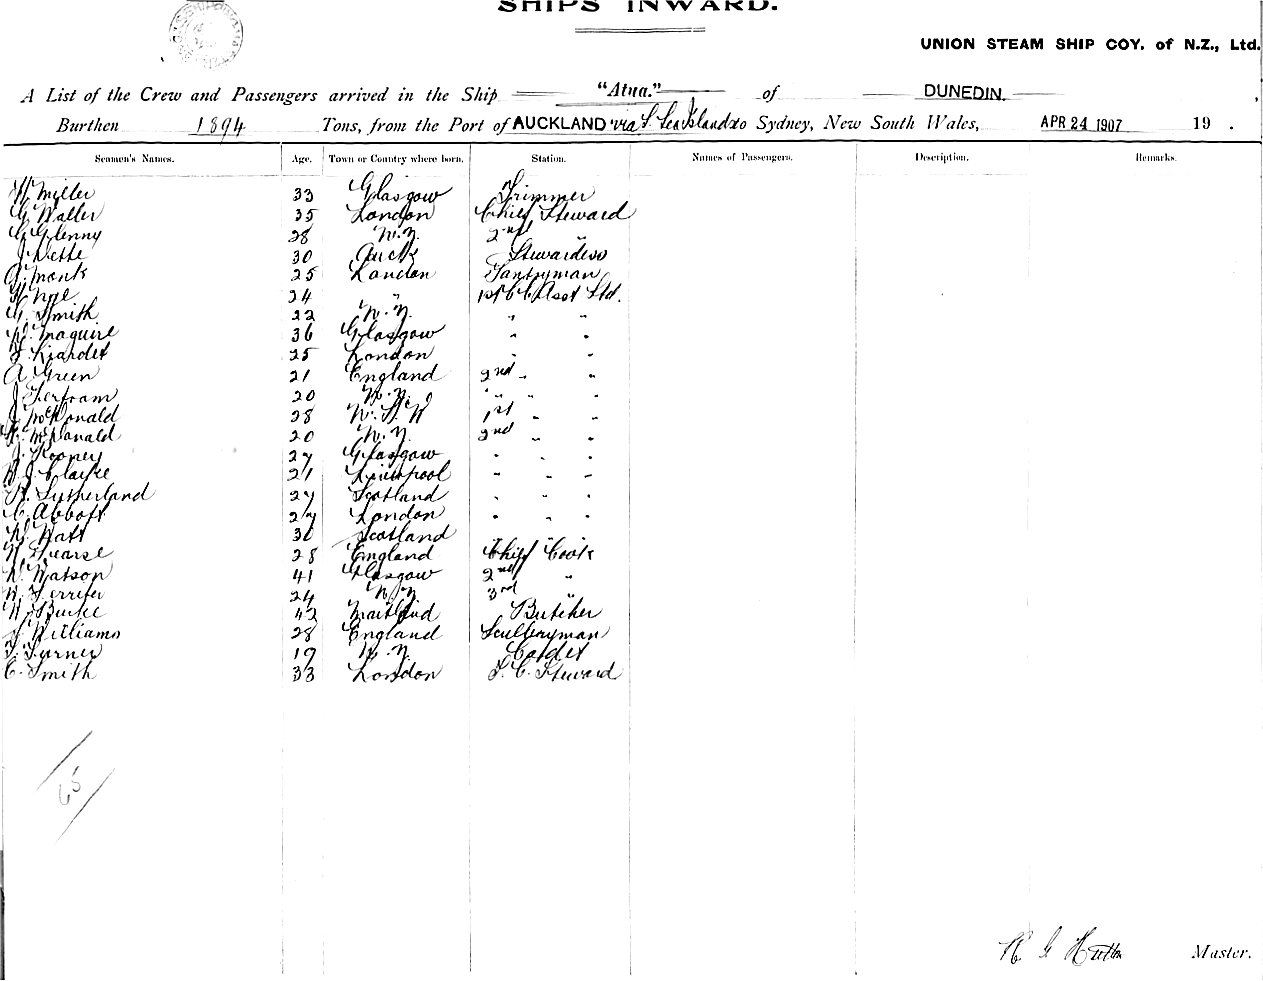 SHIPS INWARD.
UNION STEAM SHIP COY. of N.Z., Ltd.
A List of the Crew and Passengers arrived in the Ship "Atua." of DUNEDIN.
Burthen 1894 Tons, from the Port of AUCKLAND via S. Sea Islands to Sydney, New South Wales, APR 24 1907 19 .
Seamen's Names. Age. Town or Country where born. Station. Names of Passengers. Description. Remarks.
W Miller 33 Glasgow Trimmer
G Waller 35 London Chief Steward
G Glenny 28 N.Z. 2nd "
30 Auck Stewardess
A. Monk 25 London Pantryman
24 " 1st C Asst Std.
G. Smith 22 N.Z. " "
Maguire 36 Glasgow " "
Liardet 25 London " "
A Green 21 England 2nd " "
J Bertram 20 N.Z. " " "
J McDonald 28 N.S.W 1st " "
McDonald 20 N.Z. 2nd " "
J. Rooney 27 Glasgow " " "
J Clarke 21 Liverpool " " "
Sutherland 27 Scotland " " "
C. Abbott 27 London " " "
Watt 30 Scotland " " "
Pearse 28 England Chief Cook
Watson 41 Glasgow 2nd "
24 N.Z 3rd "
W Burke 42 Maitland Butcher
Williams 28 England Sculleryman
Turner 19 N.Z. Cadet
C. Smith 33 London S. C. Steward
65
Master.